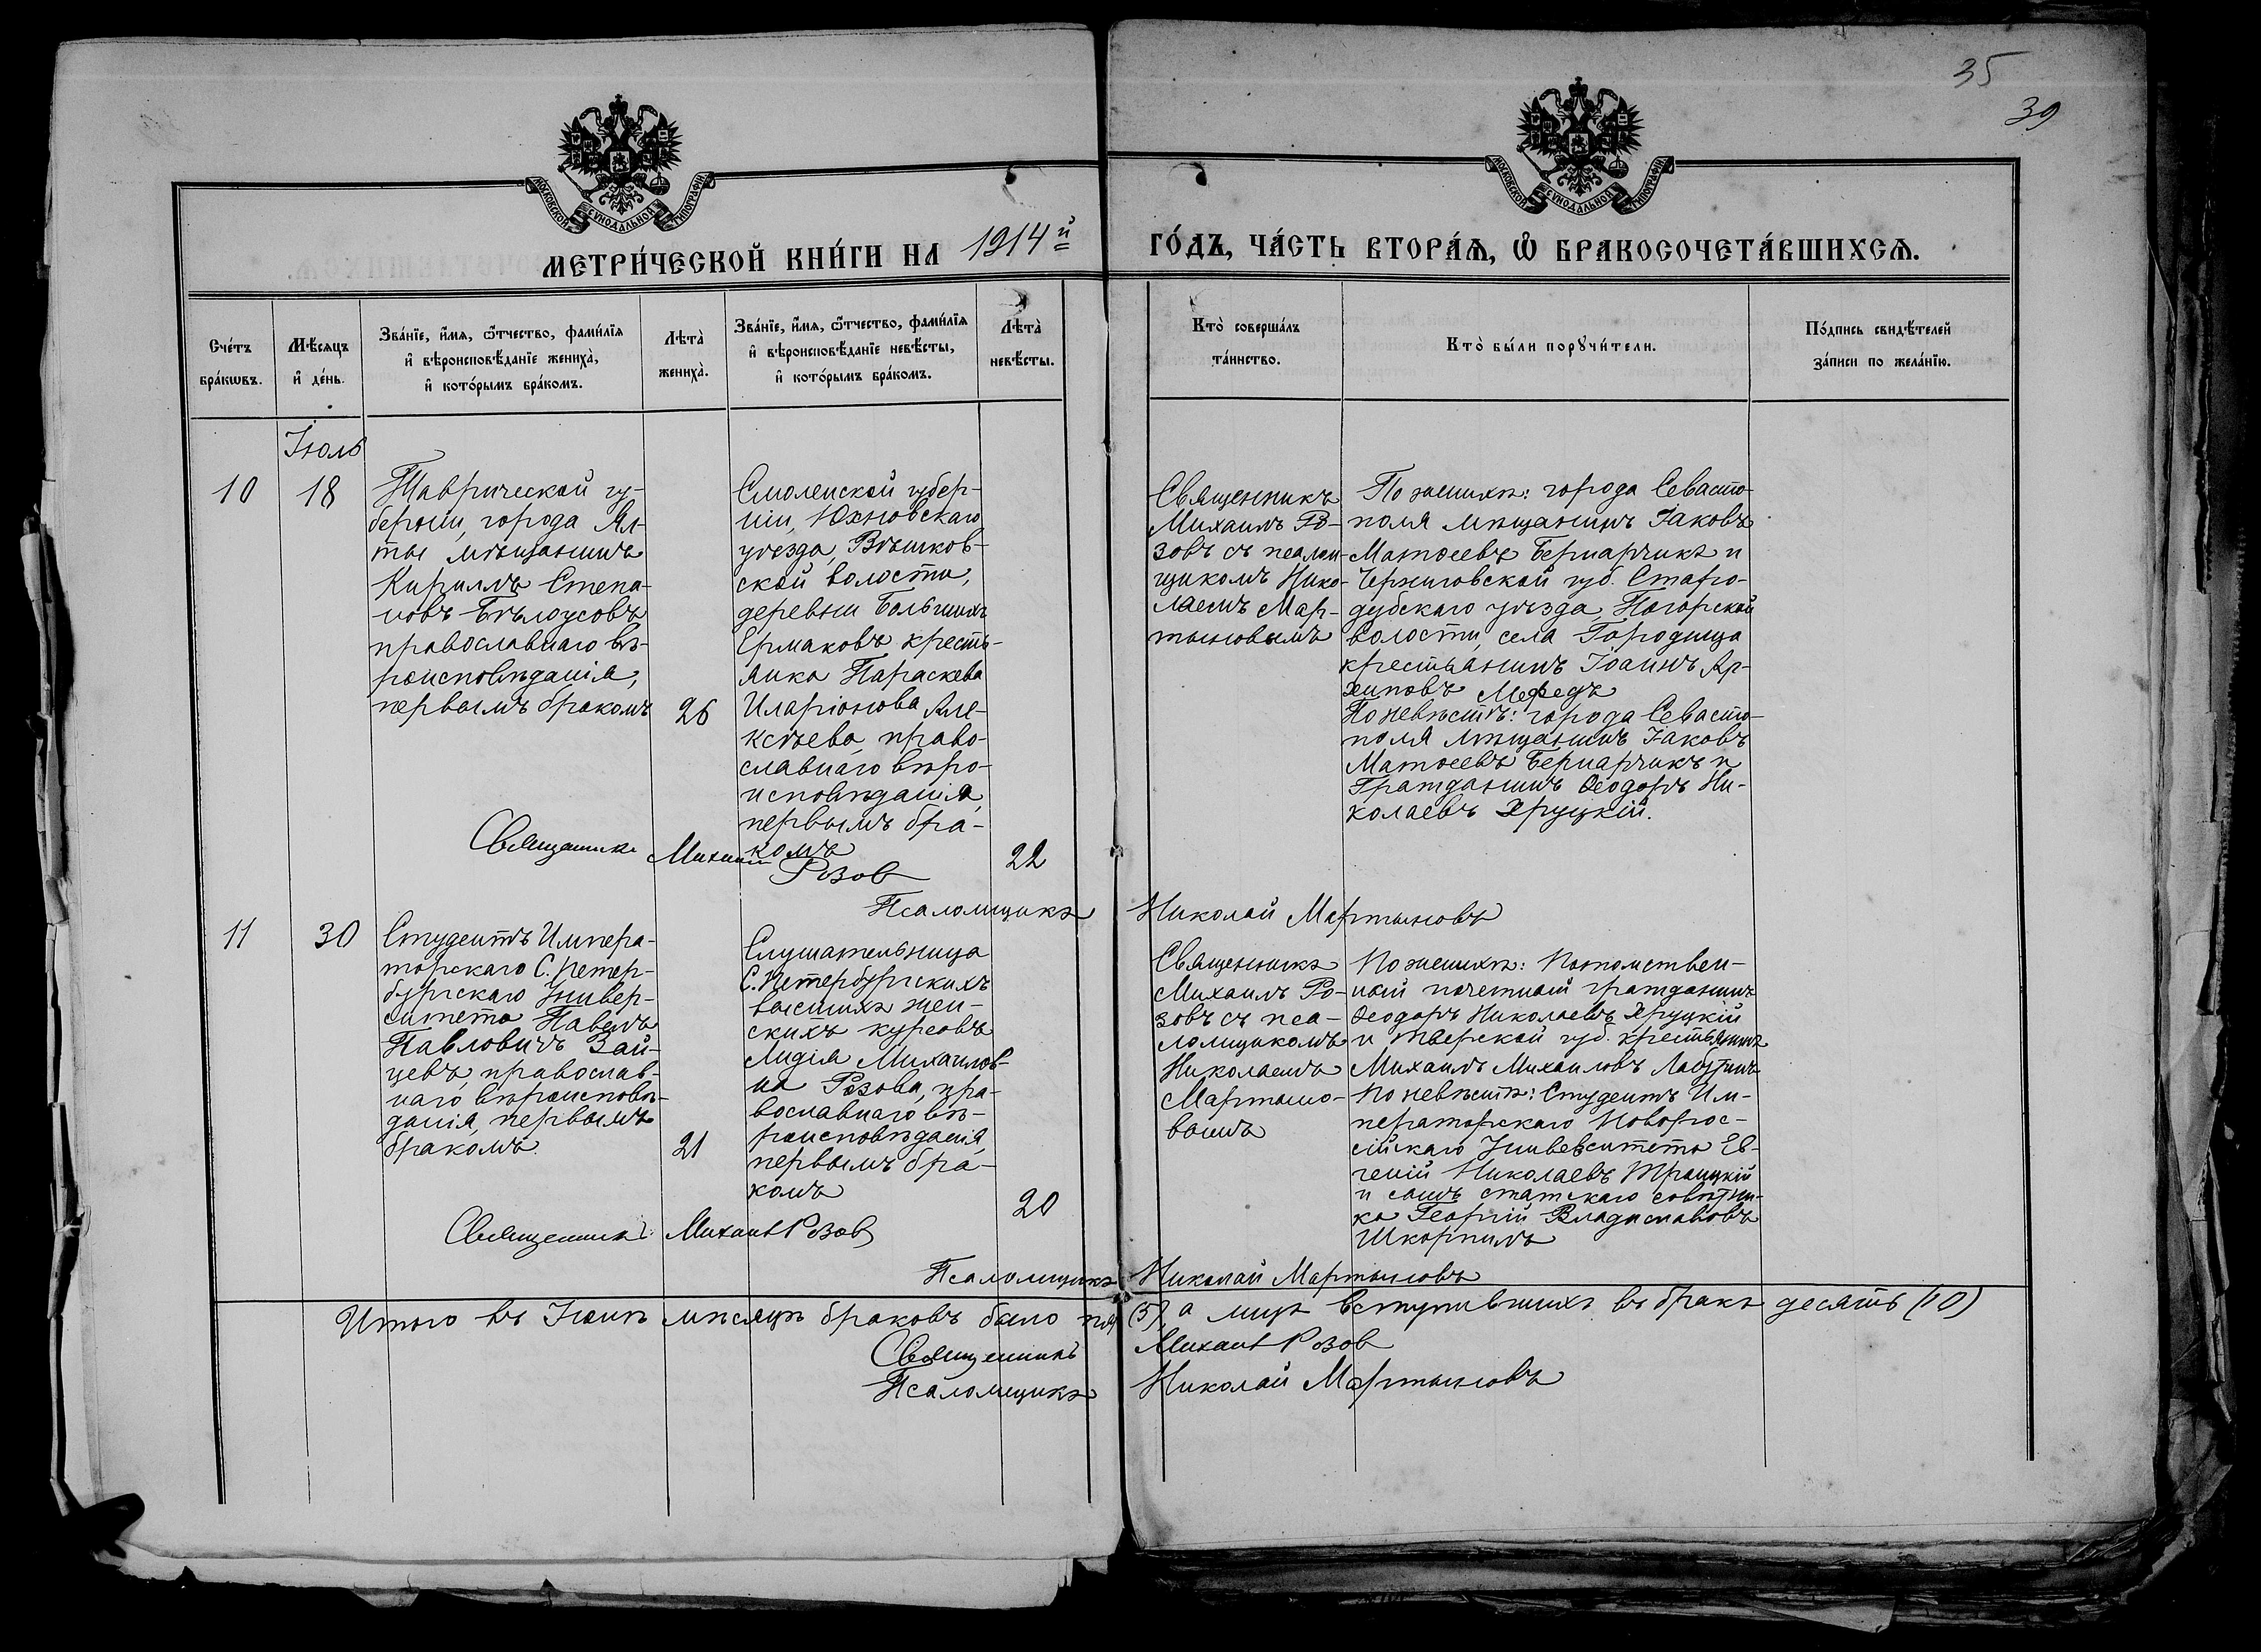 35
39
МОСКОВСКОЙ СѴНОДАЛЬНОЙ ТИПОГРАФІИ
МОСКОВСКОЙ СѴНОДАЛЬНОЙ ТИПОГРАФІИ
МЕТРИ́ЧЕСКОЙ КНИ́ГИ НА 1914й ГО́ДЪ, ЧА́СТЬ ВТОРА́Ѧ, Ѽ БРАКОСОЧЕТА́ВШИХСѦ.
Сче́тъ
бра́кѡвъ.
Мѣ́сяцъ
и҆ де́нь.
Зва́нїе, и҆́мя, ѻ҆́тчество, фами́лїя
и҆ вѣроисповѣ́данїе жениха̀,
и҆ кото́рымъ бра́комъ.
Лѣта̀
жениха̀.
Зва́нїе, и҆́мя, ѻ҆́тчество, фами́лїя
и҆ вѣроисповѣ́данїе невѣ́сты,
и҆ кото́рымъ бра́комъ.
Лѣта̀
невѣ́сты.
Кто̀ соверша́лъ
та́инство.
Кто̀ бы́ли порꙋчи́тели.
По́дпись свидѣ́телей
за́писи по жела́нїю.
Іюль
10
18
Таврической гу-
берніи, города Ял-
ты мѣщанинъ
Кириллъ Степа-
новъ Бѣлоусовъ
православнаго вѣ-
роисповѣданія,
первымъ бракомъ
26
Смоленской губер-
ніи, Юхновскаго
уѣзда, Вѣшков-
ской волости,
деревни Большихъ
Ермаковъ кресть-
янка Параскева
Иларіонова Але-
ксѣева, право-
славнаго вѣро-
исповѣданія,
первымъ бра-
комъ
22
Священникъ
Михаилъ Ро-
зовъ съ псалом-
щикомъ Нико-
лаемъ Мар-
тыновымъ
По женихѣ: города Севасто-
поля мѣщанинъ Іаковъ
Матѳеевъ Бернарчикъ и
Черниговской губ. Старо-
дубскаго уѣзда, Погорской
волости, села Городища
крестьянинъ Іоаннъ Ар-
хиповъ Медведь
По невѣстѣ: города Севасто-
поля мѣщанинъ Іаковъ
Матѳеевъ Бернарчикъ и
Гражданинъ Ѳеодоръ Ни-
колаевъ Хруцкій.
Священникъ Михаил Розов
Псаломщикъ Николай Мартыновъ
11
30
Студентъ Импера-
торскаго С. Петер-
бургскаго Универ-
ситета Павелъ
Павловичъ Зай-
цевъ, православ-
наго вѣроисповѣ-
данія, первымъ
бракомъ.
21
Слушательница
С. Петербургскихъ
высшихъ жен-
скихъ курсовъ
Лидія Михаилов-
на Розова, пра-
вославнаго вѣ-
роисповѣданія,
первымъ бра-
комъ
20
Священникъ
Михаилъ Ро-
зовъ съ пса-
ломщикомъ
Николаемъ
Мартыно-
вымъ
По женихѣ: Потомствен-
ный почетный гражданинъ
Ѳеодоръ Николаевъ Хруцкій
и Тверской губ. крестьянинъ
Михаилъ Михаиловъ Лабутинъ
По невѣстѣ: Студентъ Им-
ператорскаго Новорос-
сійскаго Университета Ев-
геній Николаевъ Троицкій
и сынъ статскаго совѣтни-
ка Георгій Владиславовъ
Шкорпилъ
Священникъ Михаил Розов
Псаломщикъ Николай Мартыновъ
Итого въ Іюлѣ мѣсяцѣ браковъ было пять (5), а лицъ вступившихъ въ бракъ десять (10)
Священникъ Михаил Розов
Псаломщикъ Николай Мартыновъ